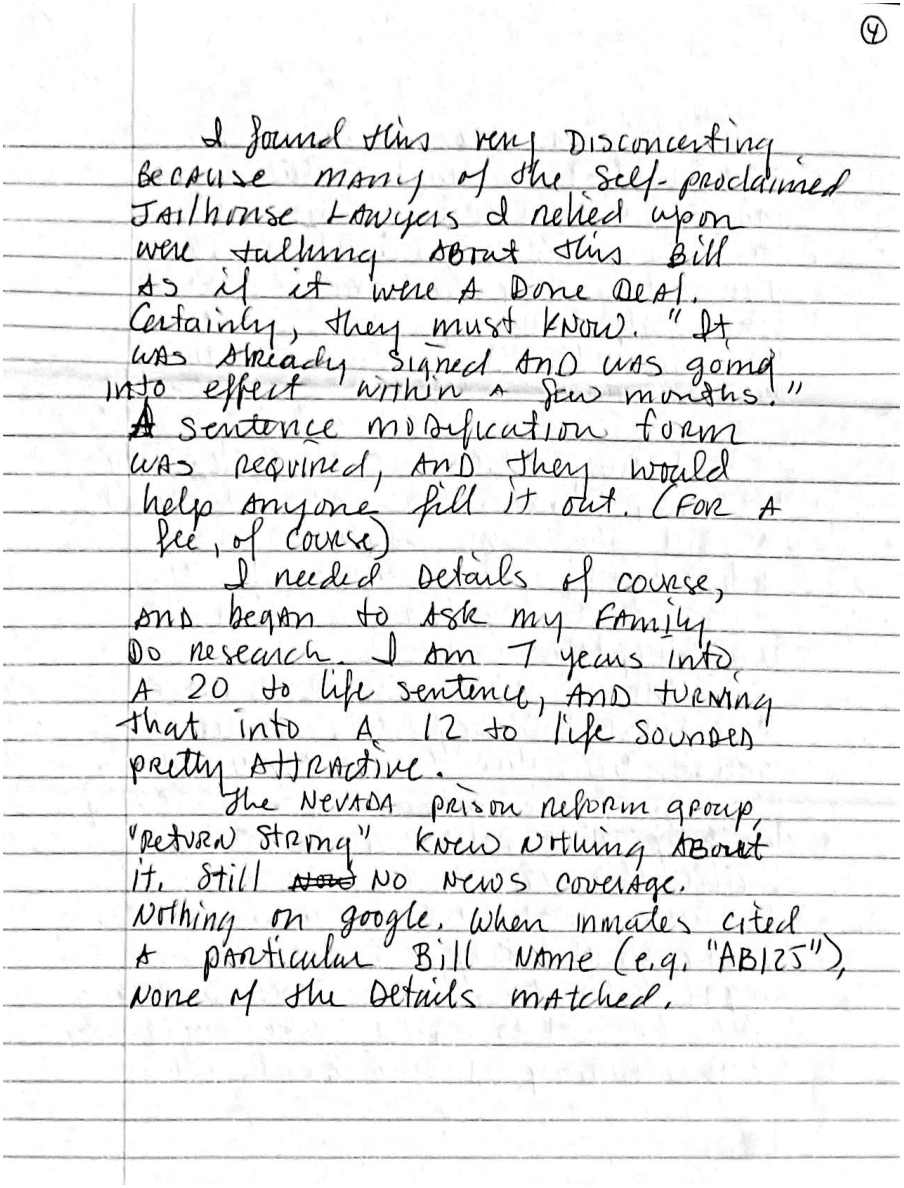 4
I found this very Disconcerting
Because many of the self-proclaimed
Jailhouse Lawyers I relied upon
were talking about this Bill
as if it were a Done Deal.
Certainly, they must know. "It
was already signed and was going
into effect within a few months."
A sentence modification form
was required, and they would
help anyone fill it out. (For a
fee, of course)
I needed Details of course,
and began to ask my family
Do research. I am 7 years into
a 20 to life sentence, and turning
that into a 12 to life sounded
pretty attractive.
The Nevada prison reform group,
"Return Strong" knew nothing about
it. Still No news coverage.
Nothing on google. When inmates cited
a particular Bill name (e.g. "AB125"),
None of the Details matched.